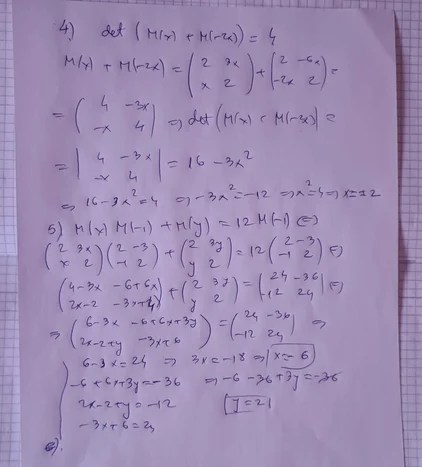 4) det (M(x) + M(-2x)) = 4
M(x) + M(-2x) = (2 3x
x 2) + (2 -6x
-2x 2) =
= (4 -3x
-x 4) ⇒ det(M(x) + M(-2x)) =
= |4 -3x
-x 4| = 16 - 3x²
⇒ 16 - 3x² = 4 ⇒ -3x² = -12 ⇒ x² = 4 ⇒ x = ±2
5) M(x) M(-1) + M(y) = 12 M(-1) ⇔
(2 3x
x 2)(2 -3
-1 2) + (2 3y
y 2) = 12(2 -3
-1 2) ⇔
(4-3x -6+6x
2x-2 -3x+4) + (2 3y
y 2) = (24 -36
-12 24) ⇔
⇒ (6-3x -6+6x+3y
2x-2+y -3x+6) = (24 -36
-12 24) ⇒
6-3x=24 ⇒ 3x=-18 ⇒ x=-6
-6+6x+3y=-36 ⇒ -6-36+3y=-36
2x-2+y=-12 y=2
-3x+6=24